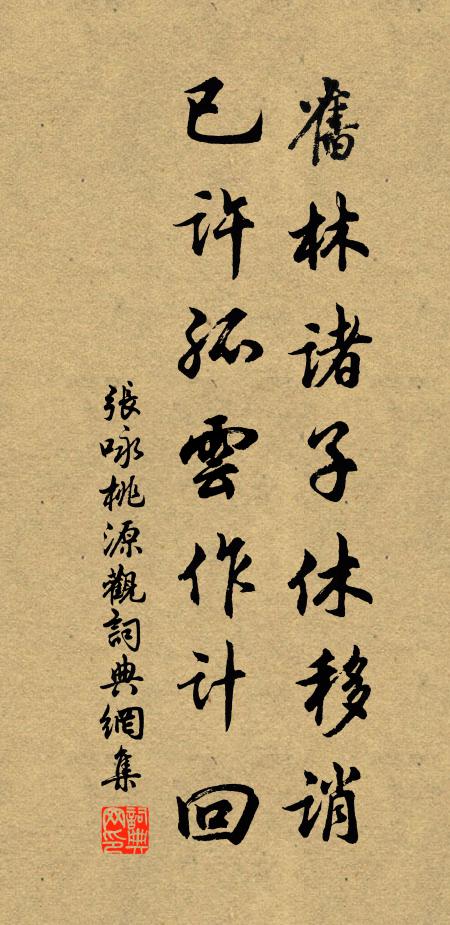 舊林諸子休移誚
已許孤雲作計回
張咏桃源觀詞典網集
詞典网印